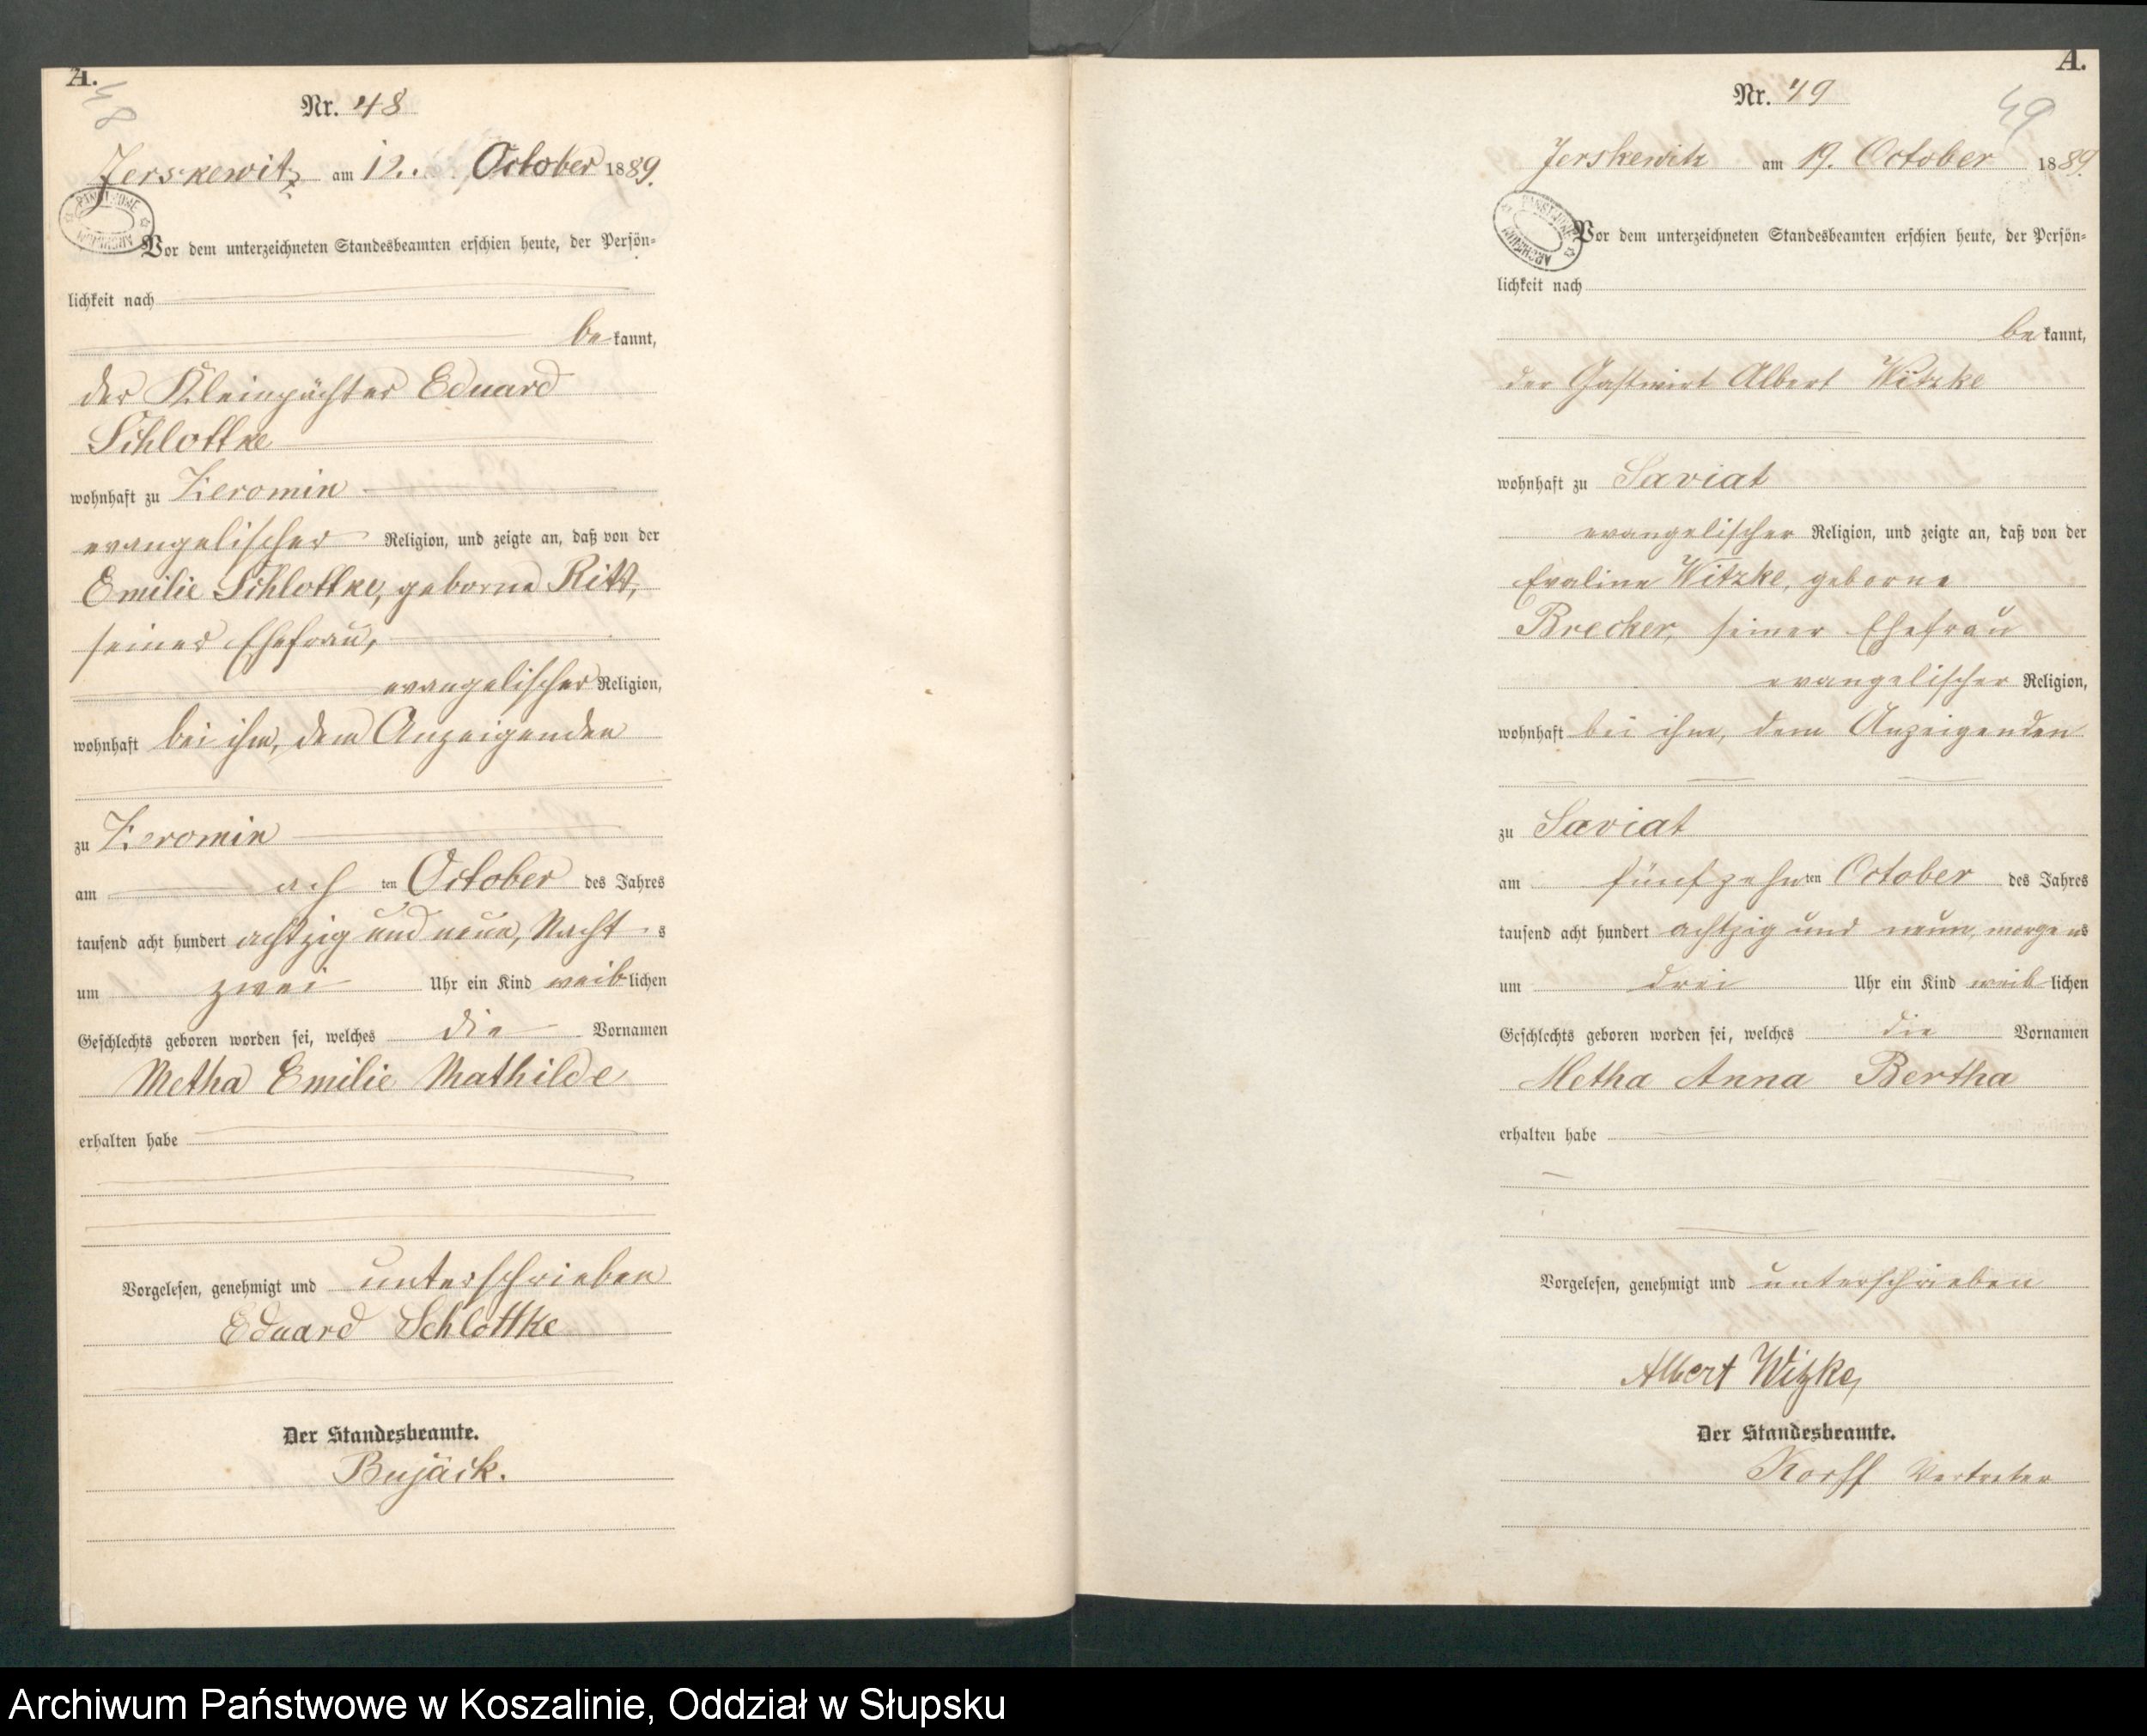 A.
48
Nr. 48
Jerskewitz am 12. October 1889.
Vor dem unterzeichneten Standesbeamten erschien heute, der Persön-
lichkeit nach
bekannt,
der Kleinpächter Eduard
Schlottke
wohnhaft zu Zeromin
evangelischer Religion, und zeigte an, daß von der
Emilie Schlottke, geborne Ritt,
seiner Ehefrau,
evangelischer Religion,
wohnhaft bei ihm, dem Anzeigenden
zu Zeromin
am ach ten October des Jahres
tausend acht hundert achtzig und neun, Nacht s
um zwei Uhr ein Kind weiblichen
Geschlechts geboren worden sei, welches die Vornamen
Metha Emilie Mathilde
erhalten habe
Vorgelesen, genehmigt und unterschrieben
Eduard Schlottke
Der Standesbeamte.
Bujäck.
A.
49
Nr. 49
Jerskewitz am 19. October 1889.
PANSTWOWE ARCHIWUM
Vor dem unterzeichneten Standesbeamten erschien heute, der Persön-
lichkeit nach
bekannt,
der Gastwirt Albert Witzke
wohnhaft zu Saviat
evangelischer Religion, und zeigte an, daß von der
Evaline Witzke, geborne
Brecker, seiner Ehefrau
evangelischer Religion,
wohnhaft bei ihm, dem Anzeigenden
zu Saviat
am fünfzehnten October des Jahres
tausend acht hundert achtzig und neun, morgens
um drei Uhr ein Kind weiblichen
Geschlechts geboren worden sei, welches die Vornamen
Metha Anna Bertha
erhalten habe
Vorgelesen, genehmigt und unterschrieben
Albert Witzke,
Der Standesbeamte.
Korff Vertreter
Archiwum Państwowe w Koszalinie, Oddział w Słupsku